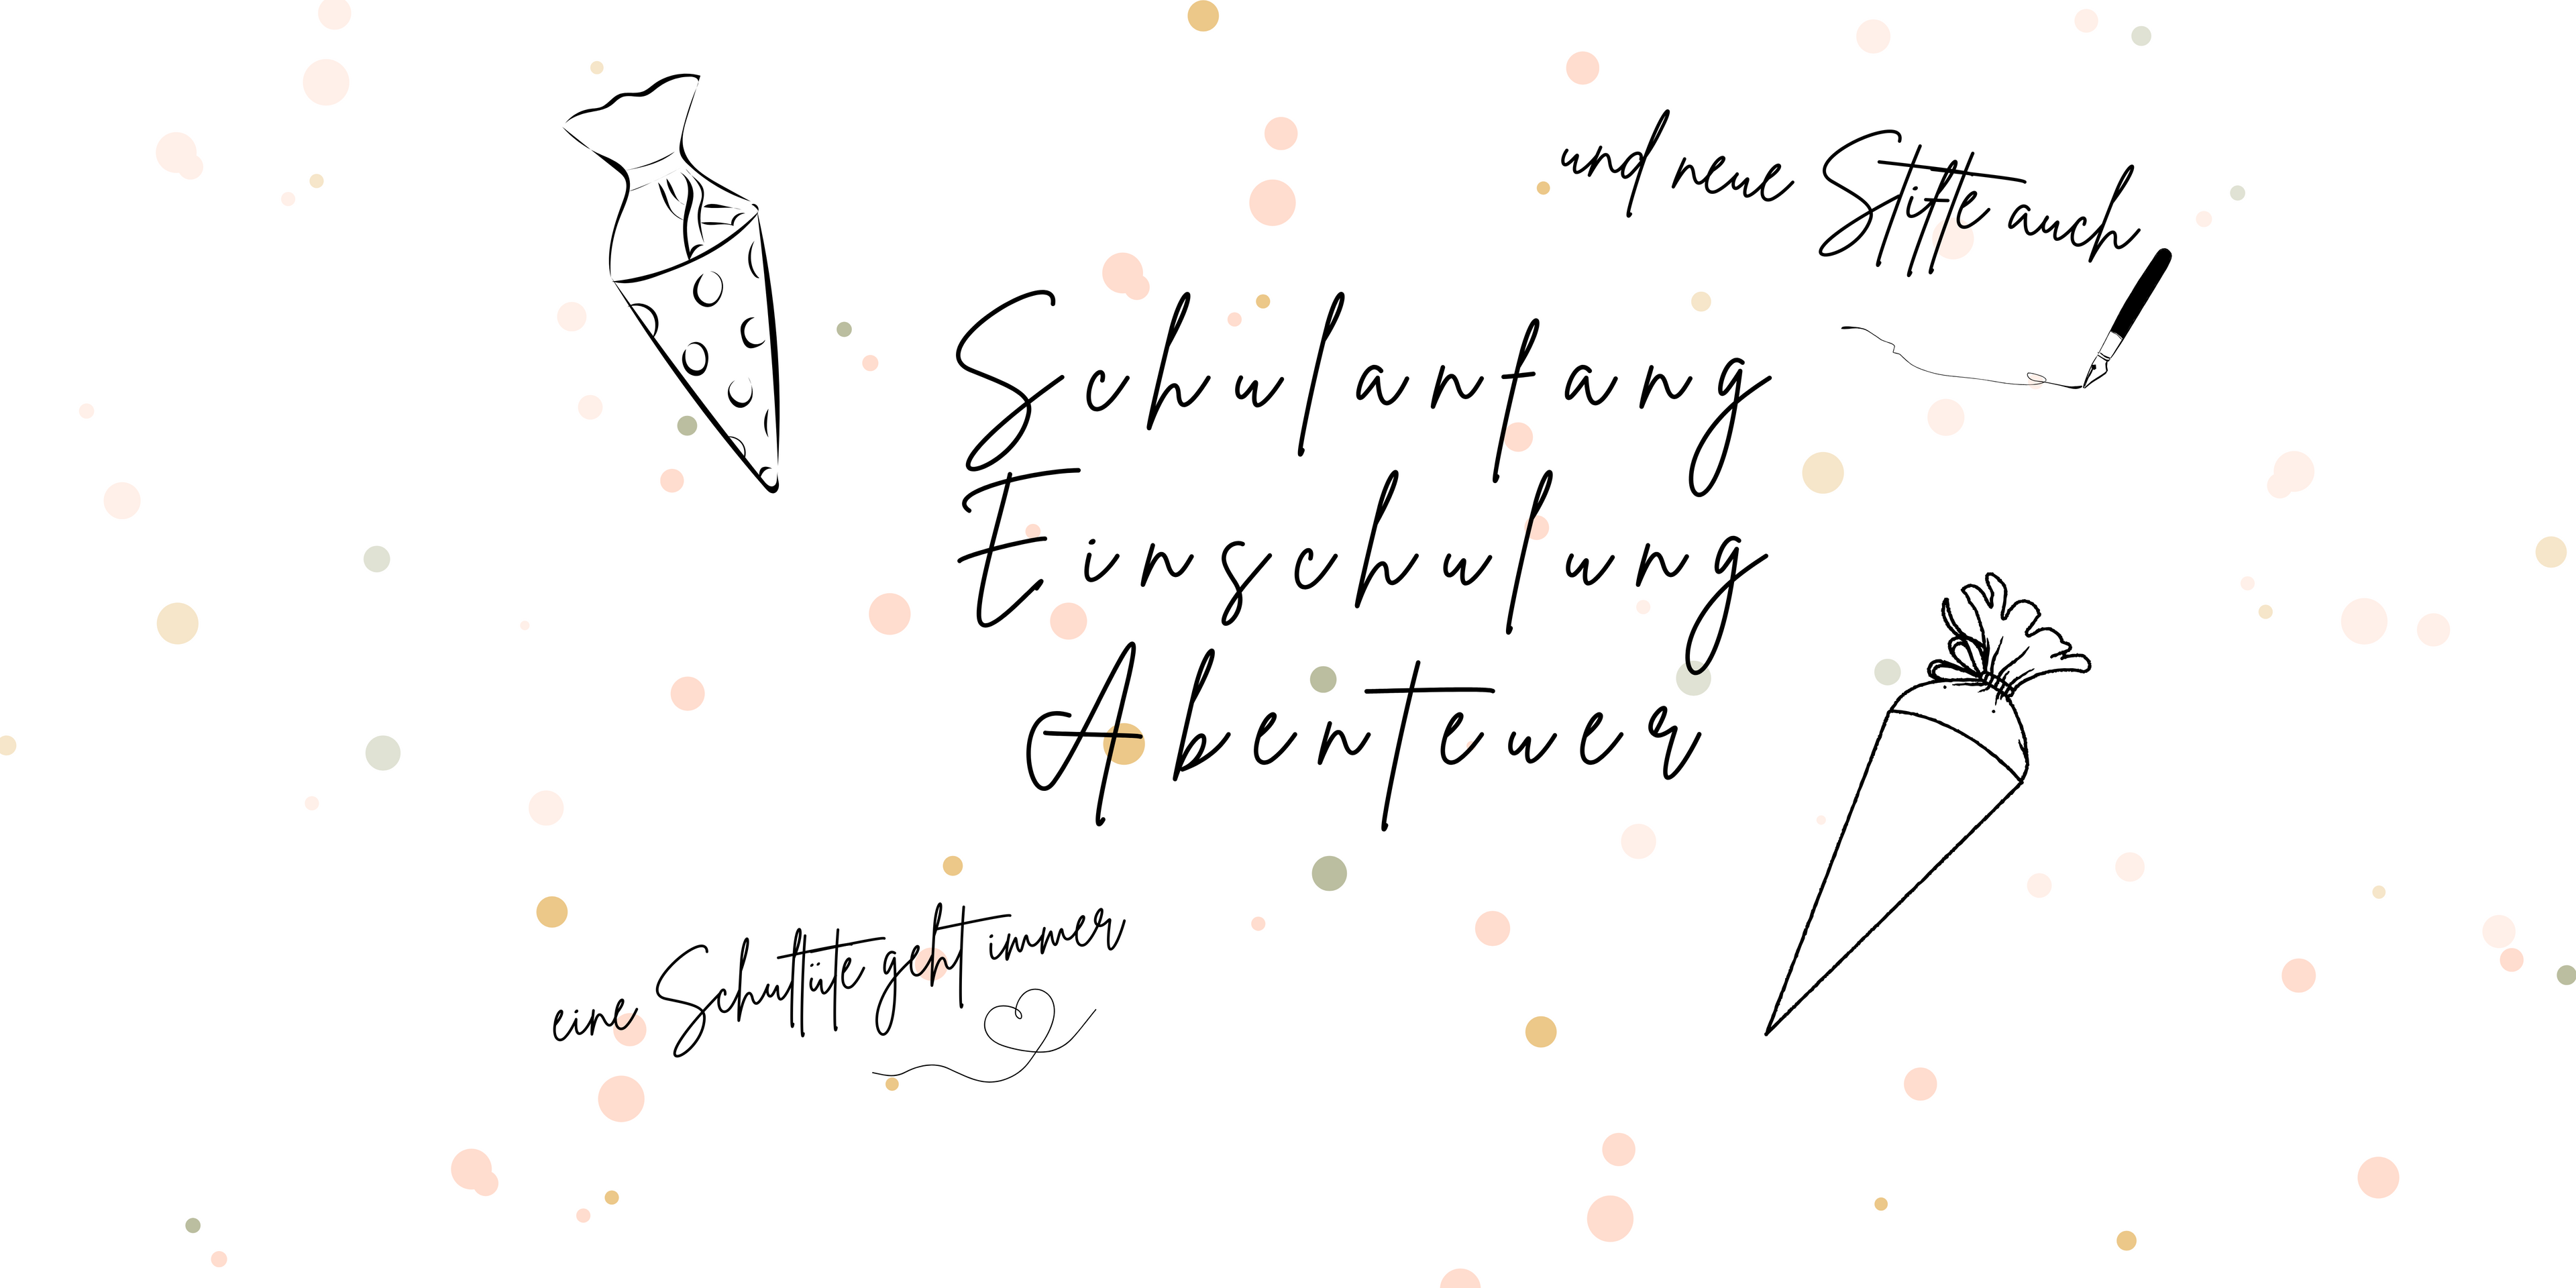 und neue Stifte auch
Schulanfang
Einschulung
Abenteuer
eine Schultüte geht immer